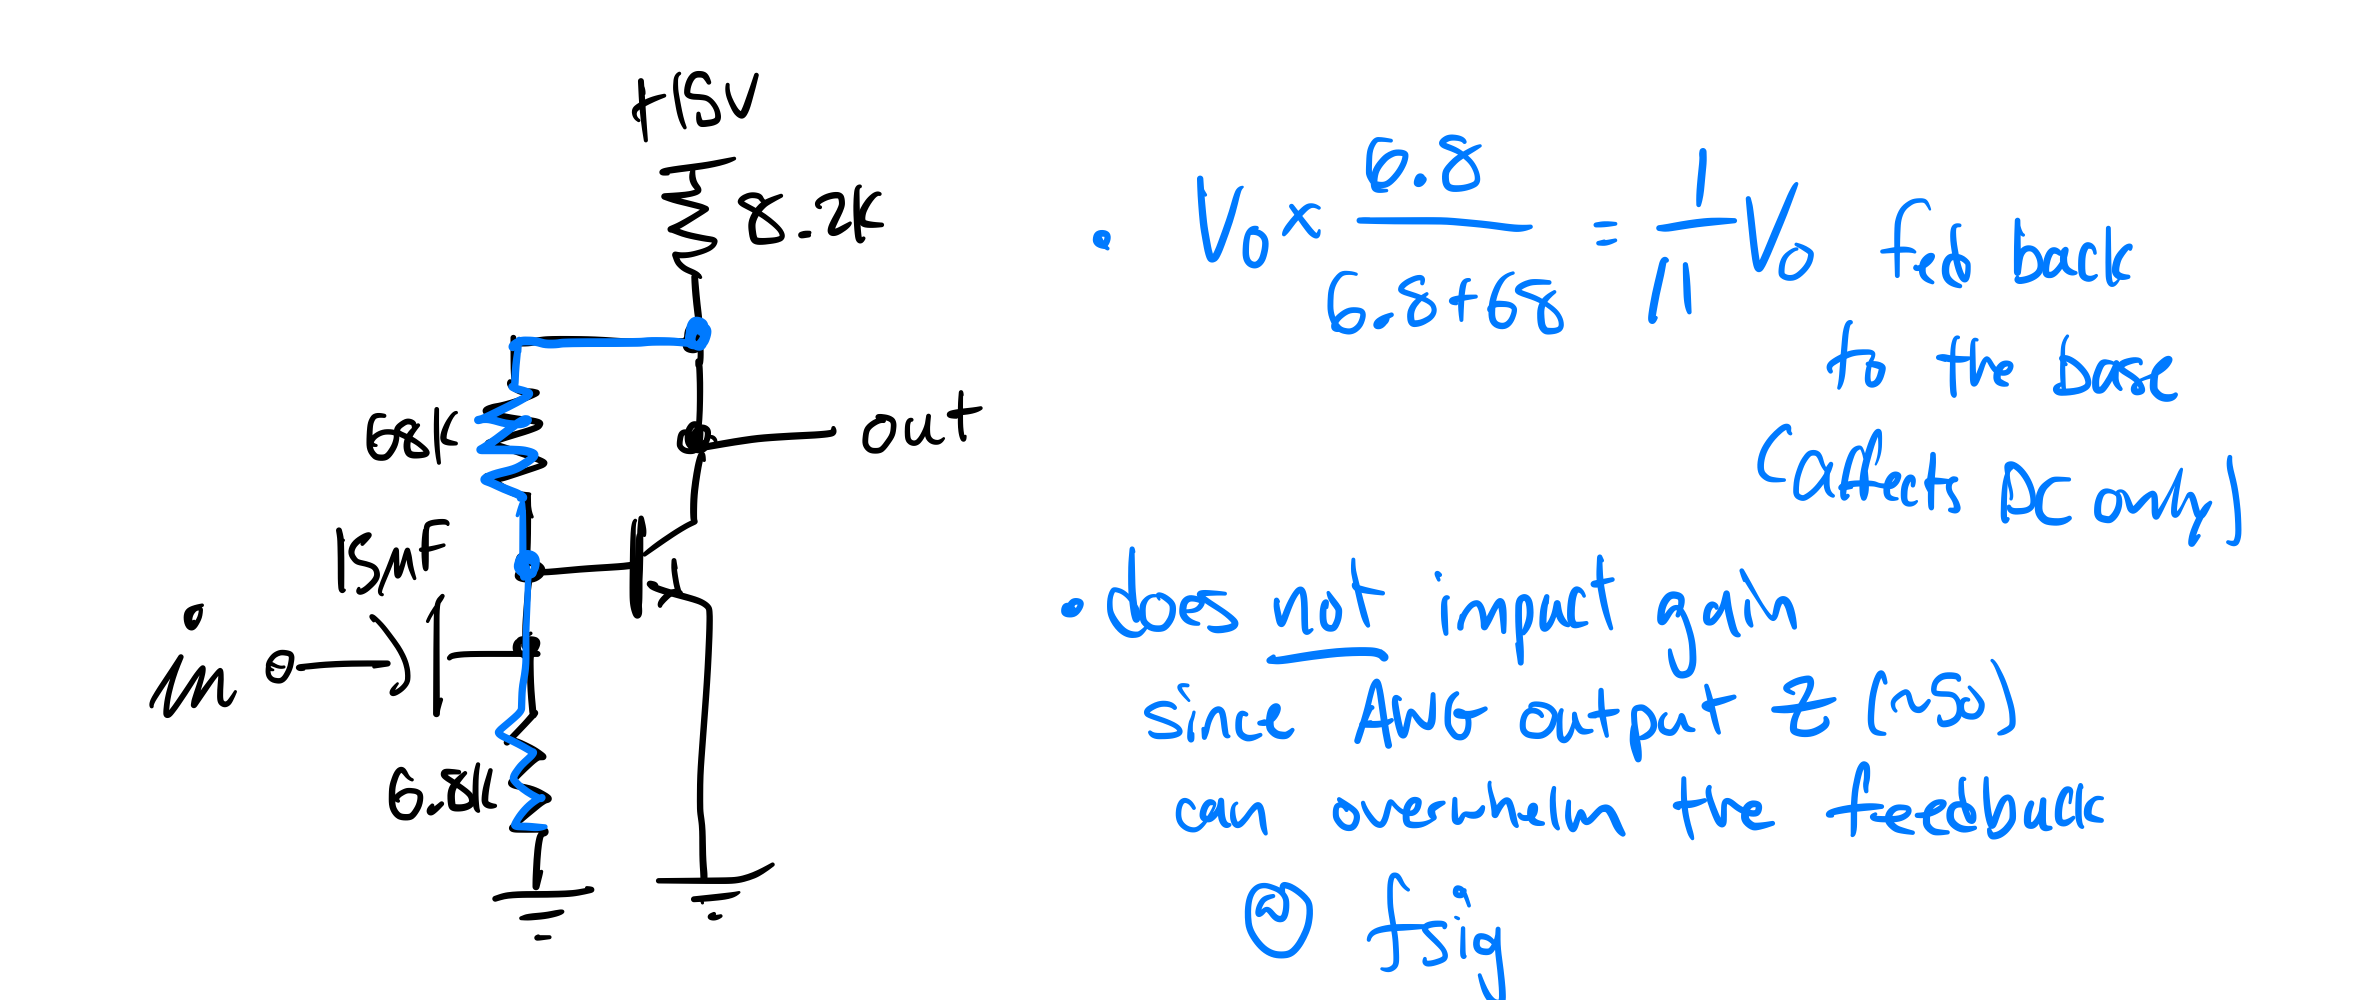 +15V
8.2K
68K
out
15µF
in
6.8K
• Vo × 6.8 / 6.8+68 = 1/11 Vo fed back
to the base
(affects DC only)
• does not impact gain
since AWG output Z (~50)
can overwhelm the feedback
@ fsig